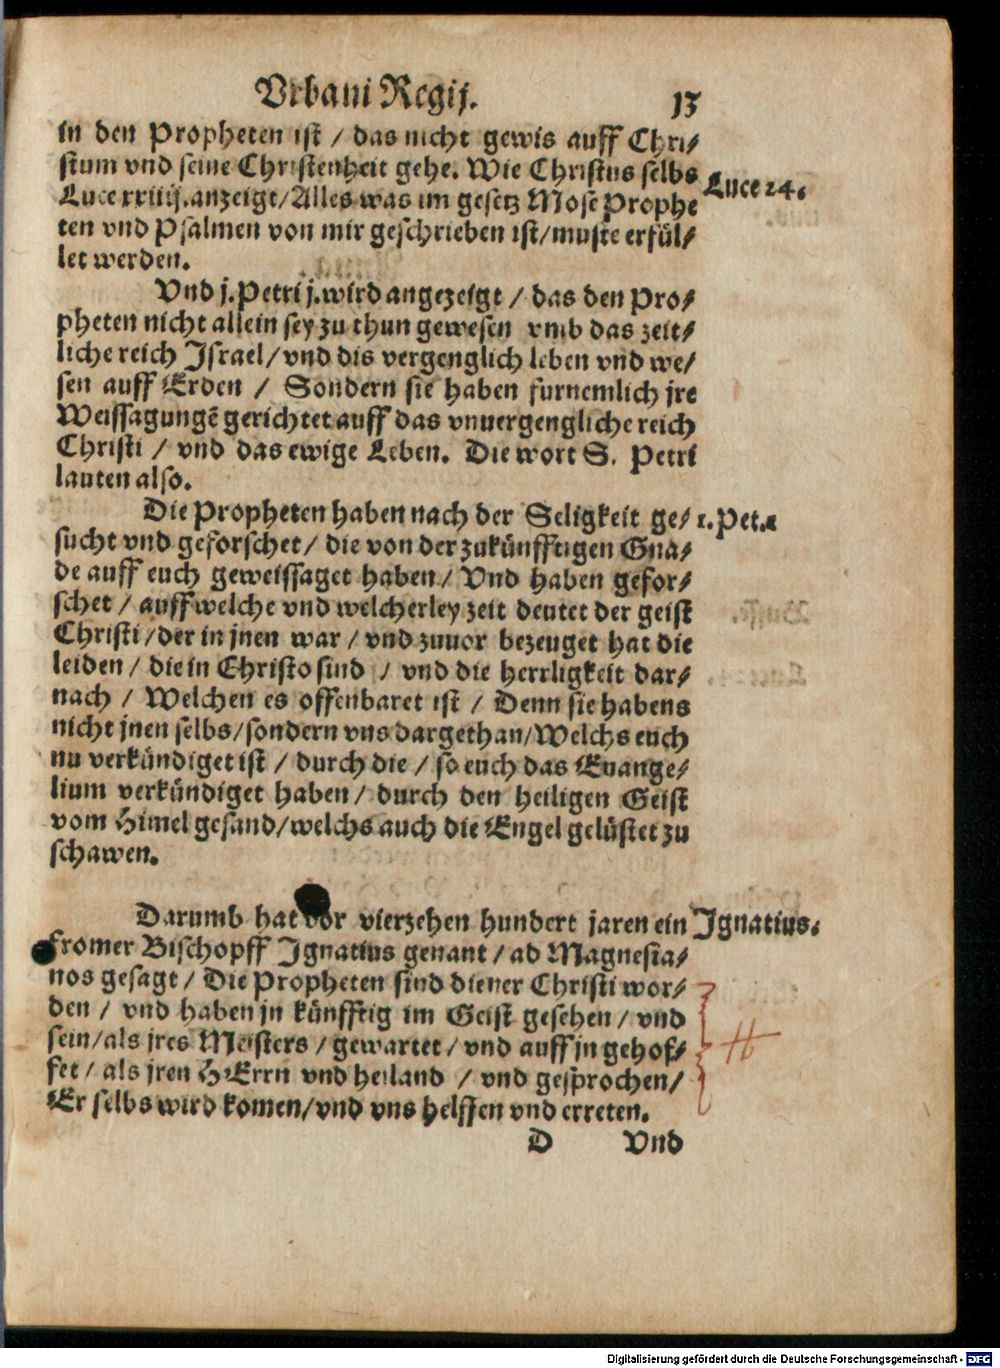 Vrbani Regij. 13
in den Propheten ist / das nicht gewis auff Chri⸗
stum vnd seine Christenheit gehe. Wie Christus selbs
Luce 24.
Luce xxiiij. anzeigt / Alles was im gesetz Mose Prophe
ten vnd Psalmen von mir geschrieben ist / muste erfül⸗
let werden.
Vnd j. Petri j. wird angezeigt / das den Pro⸗
pheten nicht allein sey zu thun gewesen vmb das zeit⸗
liche reich Israel / vnd dis vergenglich leben vnd we⸗
sen auff Erden / Sondern sie haben furnemlich jre
Weissagungē gerichtet auff das vnuergengliche reich
Christi / vnd das ewige Leben. Die wort S. Petri
lauten also.
Die Propheten haben nach der Seligkeit ge⸗
1. Pet. 1
sucht vnd geforschet / die von der zukünfftigen Gna⸗
de auff euch geweissaget haben / Vnd haben gefor⸗
schet / auff welche vnd welcherley zeit deutet der geist
Christi / der in jnen war / vnd zuuor bezeuget hat die
leiden / die in Christo sind / vnd die herrligkeit dar⸗
nach / Welchen es offenbaret ist / Denn sie habens
nicht jnen selbs / sondern vns dargethan / Welchs euch
nu verkündiget ist / durch die / so euch das Euange⸗
lium verkündiget haben / durch den heiligen Geist
vom Himel gesand / welchs auch die Engel gelüstet zu
schawen.
Darumb hat vor vierzehen hundert jaren ein
Ignatius.
fromer Bischopff Ignatius genant / ad Magnesia⸗
nos gesagt / Die Propheten sind diener Christi wor⸗
den / vnd haben jn künfftig im Geist gesehen / vnd
sein / als jres Meisters / gewartet / vnd auff jn gehof⸗
fet / als jren HErrn vnd heiland / vnd gesprochen /
Er selbs wird komen / vnd vns helffen vnd erreten.
D Vnd
Digitalisierung gefördert durch die Deutsche Forschungsgemeinschaft - DFG